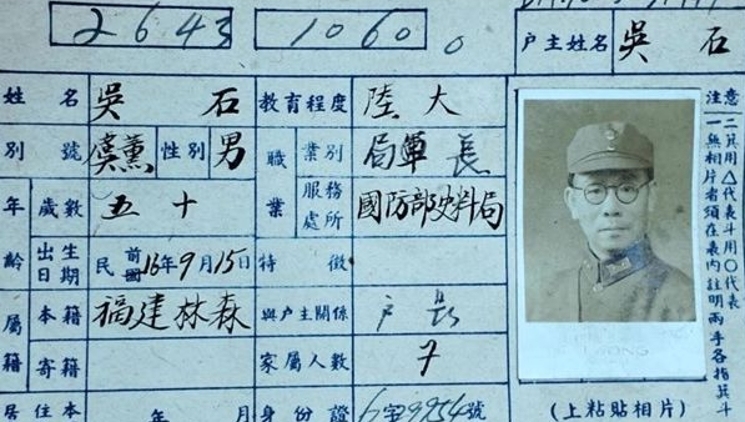 2643 1060 0
戶主姓名 吳 石
姓名 吳 石 教育程度 陸大
別號 虞薰 性別 男 職業 業別 局長
年齡 歲數 五十 服務處所 國防部史料局
出生日期 民前16年9月15日 特徵
屬籍 本籍 福建林森 與戶主關係 戶長
寄籍 家屬人數 7
居住本 年 月 身份證 字9954號
(上粘貼相片)
注意
一無相片者須在表內註明兩手各指箕斗
二箕用△代表斗用○代表